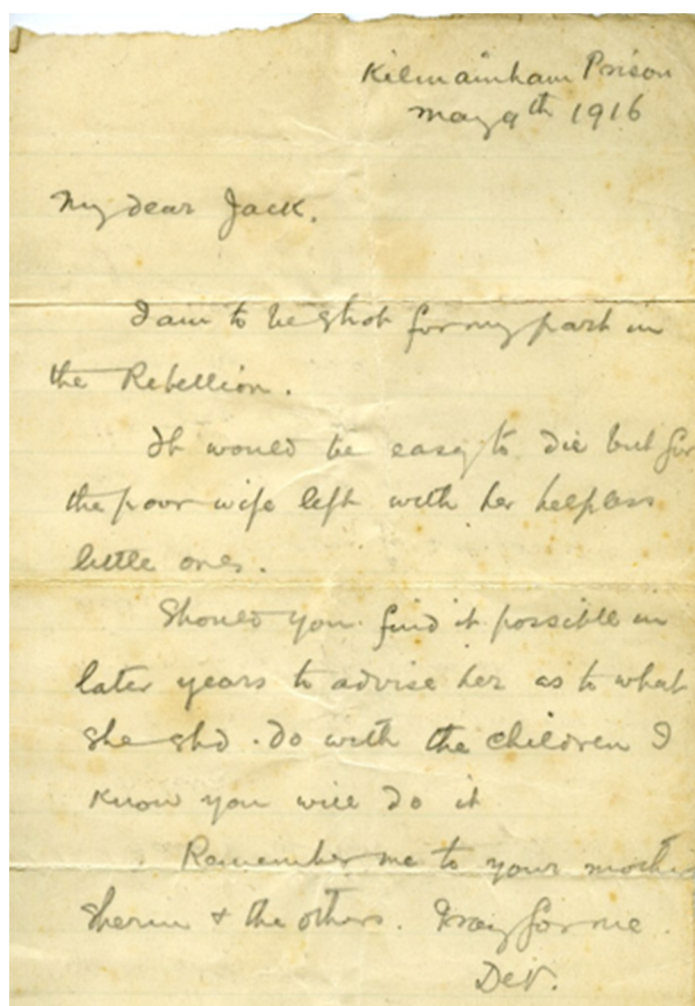 Kilmainham Prison
May 9th 1916
My dear Jack.
I am to be shot for my part in
the Rebellion.
It would be easy to die but for
the poor wife left with her helpless
little ones.
Should you find it possible in
later years to advise her as to what
she shd. do with the children I
know you will do it
Remember me to your mother
& the others. Pray for me.
DeV.